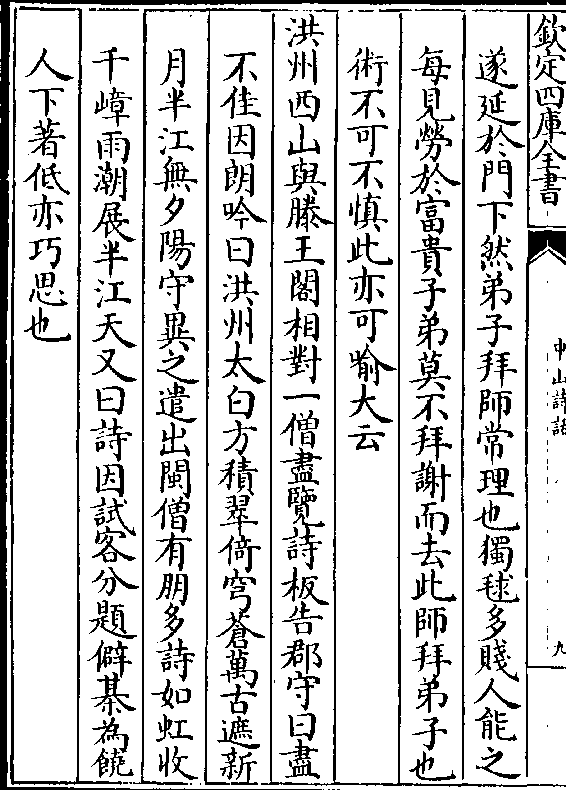 欽定四庫全書
中山詩話
九
遂延於門下然弟子拜師常理也獨毬多賤人能之
每見勞於富貴子弟莫不拜謝而去此師拜弟子也
術不可不慎此亦可喻大云
洪州西山與滕王閣相對一僧盡覽詩板告郡守曰盡
不佳因朗吟曰洪州太白方積翠倚穹蒼萬古遮新
月半江無夕陽守異之遣出閩僧有朋多詩如虹收
千嶂雨潮展半江天又曰詩因試客分題僻棊為饒
人下著低亦巧思也